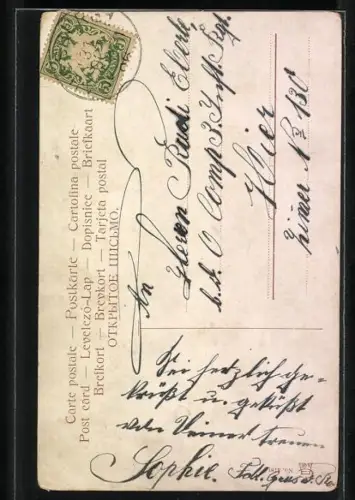 Carte postale — Postkarte — Cartolina postale
Post card — Levelező-Lap — Dopisnice — Briefkaart
Breikort — Brevkort — Tarjeta postal
ОТКРЫТОЕ ПИСЬМО.
An
Herrn Rudi Eberle
b.d. Comp 3. Inft Regt.
Hier
Zimer No 130
Sei herzlich ge-
küßt u geküßt
von Deiner treuen
Sophie.